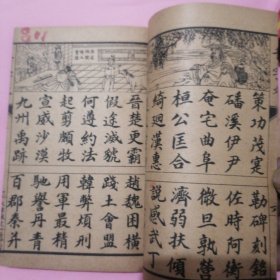 策功茂實勒碑刻銘
磻溪伊尹佐時阿衡
奄宅曲阜微旦孰營
桓公匡合濟弱扶傾
綺廻漢惠說感武丁
晉楚更霸趙魏困橫
假途滅虢踐土會盟
何遵約法韓弊煩刑
起翦頗牧用軍最精
宣威沙漠馳譽丹青
九州禹跡百郡秦并